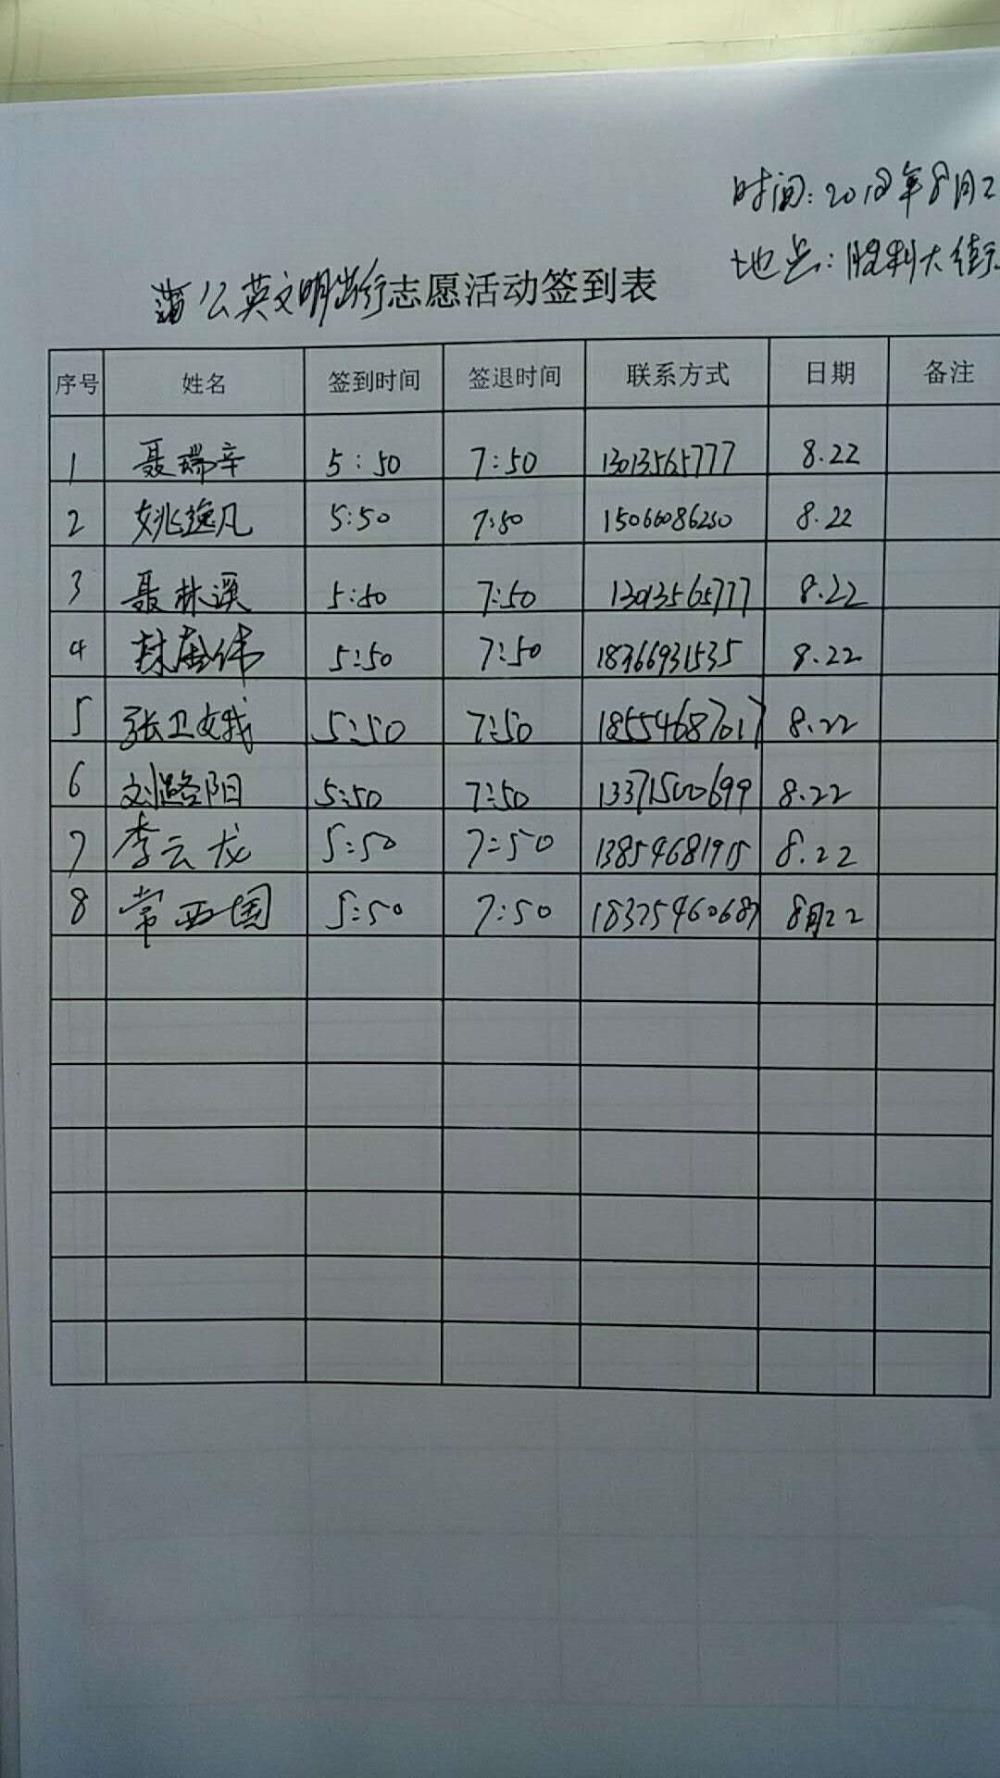 时间:2018年8月2
地点:胜利大街
蒲公英文明出行志愿活动签到表
序号 姓名 签到时间 签退时间 联系方式 日期 备注
1 聂瑞辛 5:50 7:50 13013565777 8.22
2 姚逸凡 5:50 7:50 15066086250 8.22
3 聂林溪 5:50 7:50 13013565777 8.22
4 5:50 7:50 18366931535 8.22
5 张卫娥 5:50 7:50 18554687017 8.22
6 刘路阳 5:50 7:50 13371500699 8.22
7 李云龙 5:50 7:50 13854681915 8.22
8 常西国 5:50 7:50 18325460687 8月22